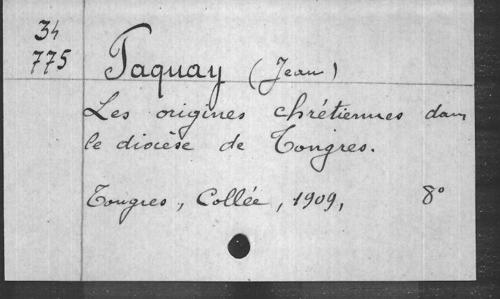 34
775
Paquay (Jean)
Les origines chrétiennes dans
le diocèse de Tongres.
Tongres, Collée, 1909, 8°